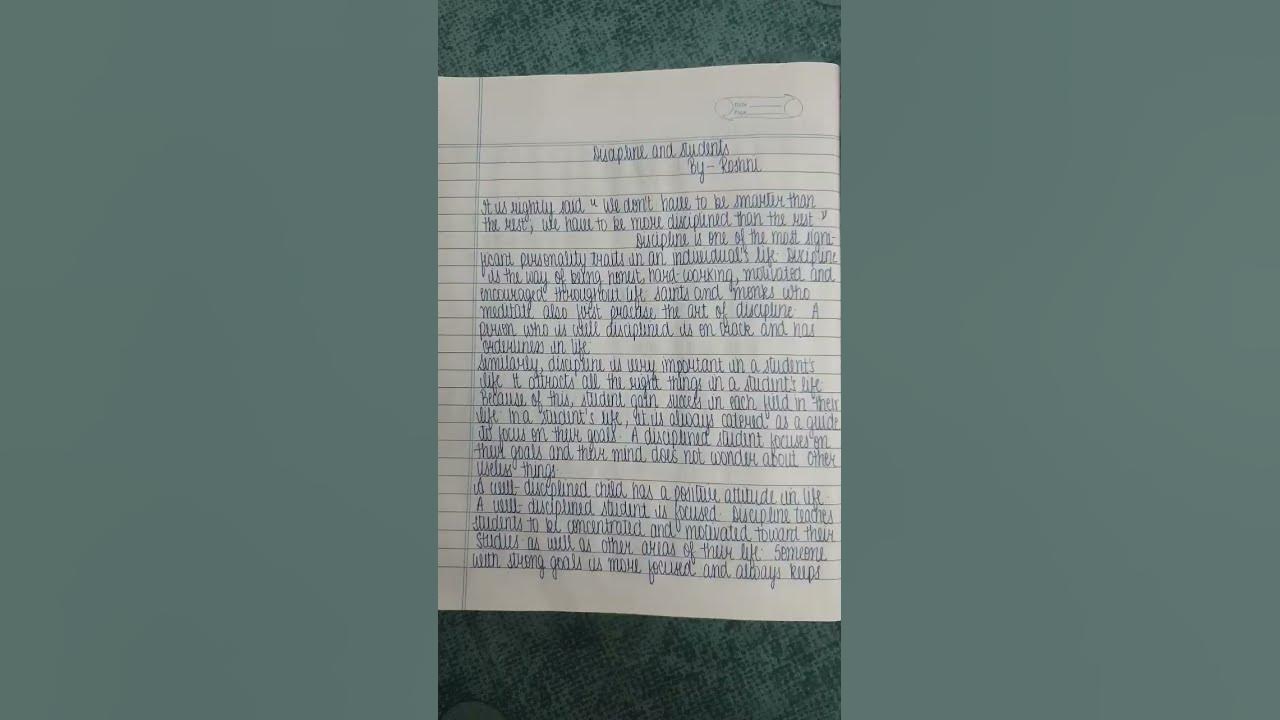 Date
Page
Discipline and students
By - Roshni
It is rightly said " we don't have to be smarter than
the rest, we have to be more disciplined than the rest "
Discipline is one of the most signi-
ficant personality traits in an individual's life. Discipline
is the way of being honest, hard-working, motivated and
encouraged throughout life. saints and monks who
meditate also first practise the art of discipline. A
person who is well disciplined is on track and has
orderliness in life.
Similarly, discipline is very important in a student's
life. It attracts all the right things in a student's life.
Because of this, student gain success in each field in their
life. In a student's life, it is always catered as a guide
to focus on their goals. A disciplined student focuses on
their goals and their mind does not wonder about other
useless things.
A well-disciplined child has a positive attitude in life.
A well-disciplined student is focused. Discipline teaches
students to be concentrated and motivated toward their
studies as well as other areas of their life. Someone
with strong goals is more focused and always keeps